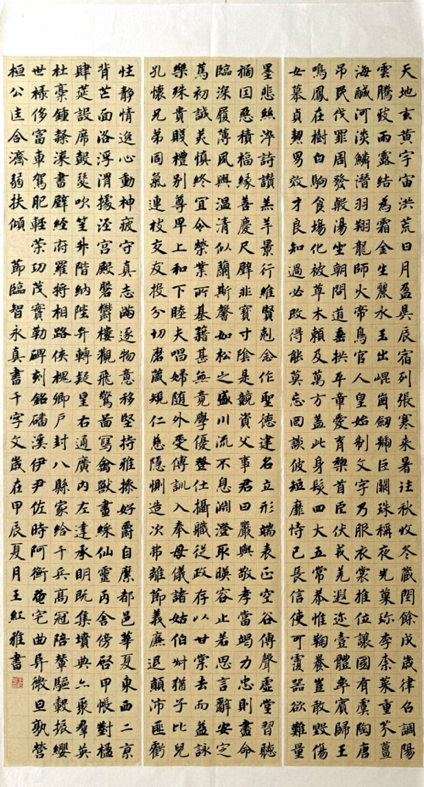 天地玄黃宇宙洪荒日月盈昃辰宿列張寒來暑往秋收冬藏閏餘成歲律呂調陽
雲騰致雨露結為霜金生麗水玉出崑崗劍號巨闕珠稱夜光菓珍李柰菜重芥薑
海鹹河淡鱗潛羽翔龍師火帝鳥官人皇始制文字乃服衣裳推位讓國有虞陶唐
弔民伐罪周發殷湯坐朝問道垂拱平章愛育黎首臣伏戎羌遐邇壹體率賓歸王
鳴鳳在樹白駒食場化被草木賴及萬方蓋此身髮四大五常恭惟鞠養豈敢毀傷
女慕貞絜男效才良知過必改得能莫忘罔談彼短靡恃己長信使可覆器欲難量
墨悲絲淬詩讚羔羊景行維賢剋念作聖德建名立形端表正空谷傳聲虛堂習聽
禍因惡積福緣善慶尺璧非寶寸陰是競資父事君曰嚴與敬孝當竭力忠則盡命
臨深履薄夙興溫凊似蘭斯馨如松之盛川流不息淵澄取暎容止若思言辭安定
篤初誠美慎終宜令榮業所基藉甚無竟學優登仕攝職從政存以甘棠去而益詠
樂殊貴賤禮別尊卑上和下睦夫唱婦隨外受傅訓入奉母儀諸姑伯叔猶子比兒
孔懷兄弟同氣連枝交友投分切磨箴規仁慈隱惻造次弗離節義廉退顛沛匪虧
性靜情逸心動神疲守真志滿逐物意移堅持雅操好爵自縻都邑華夏東西二京
背芒面洛浮渭據涇宮殿盤鬱樓觀飛驚圖寫禽獸畫綵仙靈丙舍傍啓甲帳對楹
肆筵設席鼓瑟吹笙升階納陛弁轉疑星右通廣內左達承明既集墳典亦聚羣英
杜稾鍾隸漆書壁經府羅將相路俠槐卿戶封八縣家給千兵高冠陪輦驅轂振纓
世祿侈富車駕肥輕策功茂實勒碑刻銘磻溪伊尹佐時阿衡奄宅曲阜微旦孰營
桓公匡合濟弱扶傾 節臨智永真書千字文歲在甲辰夏月王紅雅書